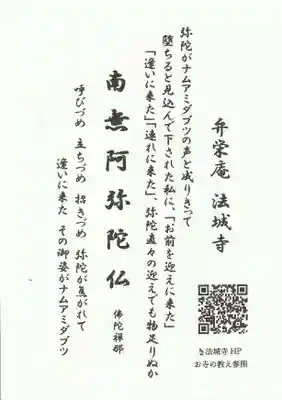 弁栄庵 法城寺
弥陀がナムアミダブツの声と成りきって
堕ちると見込んで下された私に、「お前を迎えに来た」
「逢いに来た」「連れに来た」、弥陀直々の迎えでも物足りぬか
南無阿弥陀仏
佛陀禅那
呼びづめ 立ちづめ 招きづめ 弥陀が焦がれて
逢いに来た その御姿がナムアミダブツ
法城寺HP
お寺の教え参照